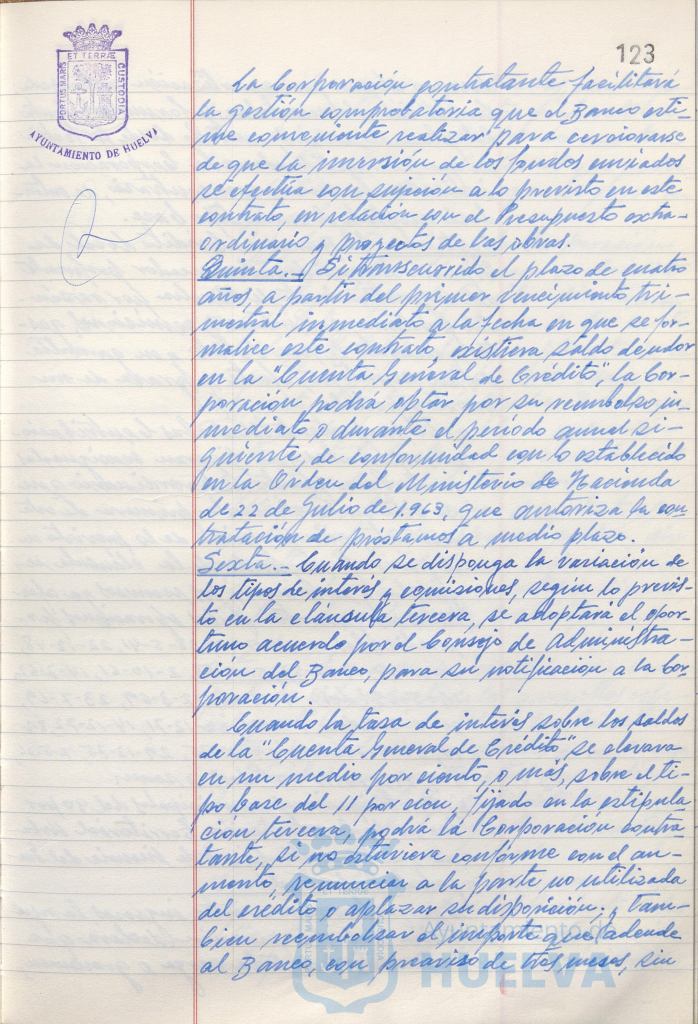 123
PORTUS MARIS ET TERRÆ CUSTODIA
AYUNTAMIENTO DE HUELVA
La Corporación contratante facilitará
la gestión comprobatoria que el Banco esti-
me conveniente realizar para cerciorarse
de que la inversión de los fondos enviados
se efectúa con sujeción a lo previsto en este
contrato, en relación con el Presupuesto extra-
ordinario y proyectos de las obras.
Quinta.- Si transcurrido el plazo de cuatro
años, a partir del primer vencimiento tri-
mestral inmediato a la fecha en que se for-
malice este contrato, existiera saldo deudor
en la "Cuenta General de Crédito", la Cor-
poración podrá optar por su reembolso in-
mediato o durante el período anual si-
guiente, de conformidad con lo establecido
en la Orden del Ministerio de Hacienda
de 22 de Julio de 1.963, que autoriza la con
tratación de préstamos a medio plazo.
Sexta.- Cuando se disponga la variación de
los tipos de interés y comisiones, según lo previs-
to en la cláusula tercera, se adoptará el opor-
tuno acuerdo por el Consejo de Administra-
ción del Banco, para su notificación a la Cor-
poración.
Cuando la tasa de interés sobre los saldos
de la "Cuenta General de Crédito" se elevara
en un medio por ciento, o más, sobre el ti-
po base del 11 por cien, fijado en la estipula
ción tercera, podrá la Corporación contra-
tante, si no estuviera conforme con el au-
mento, renunciar a la parte no utilizada
del crédito o aplazar su disposición, y tam-
bien reembolsar el importe que adeude
al Banco, con preaviso de tres meses, sin
Ayuntamiento de
HUELVA